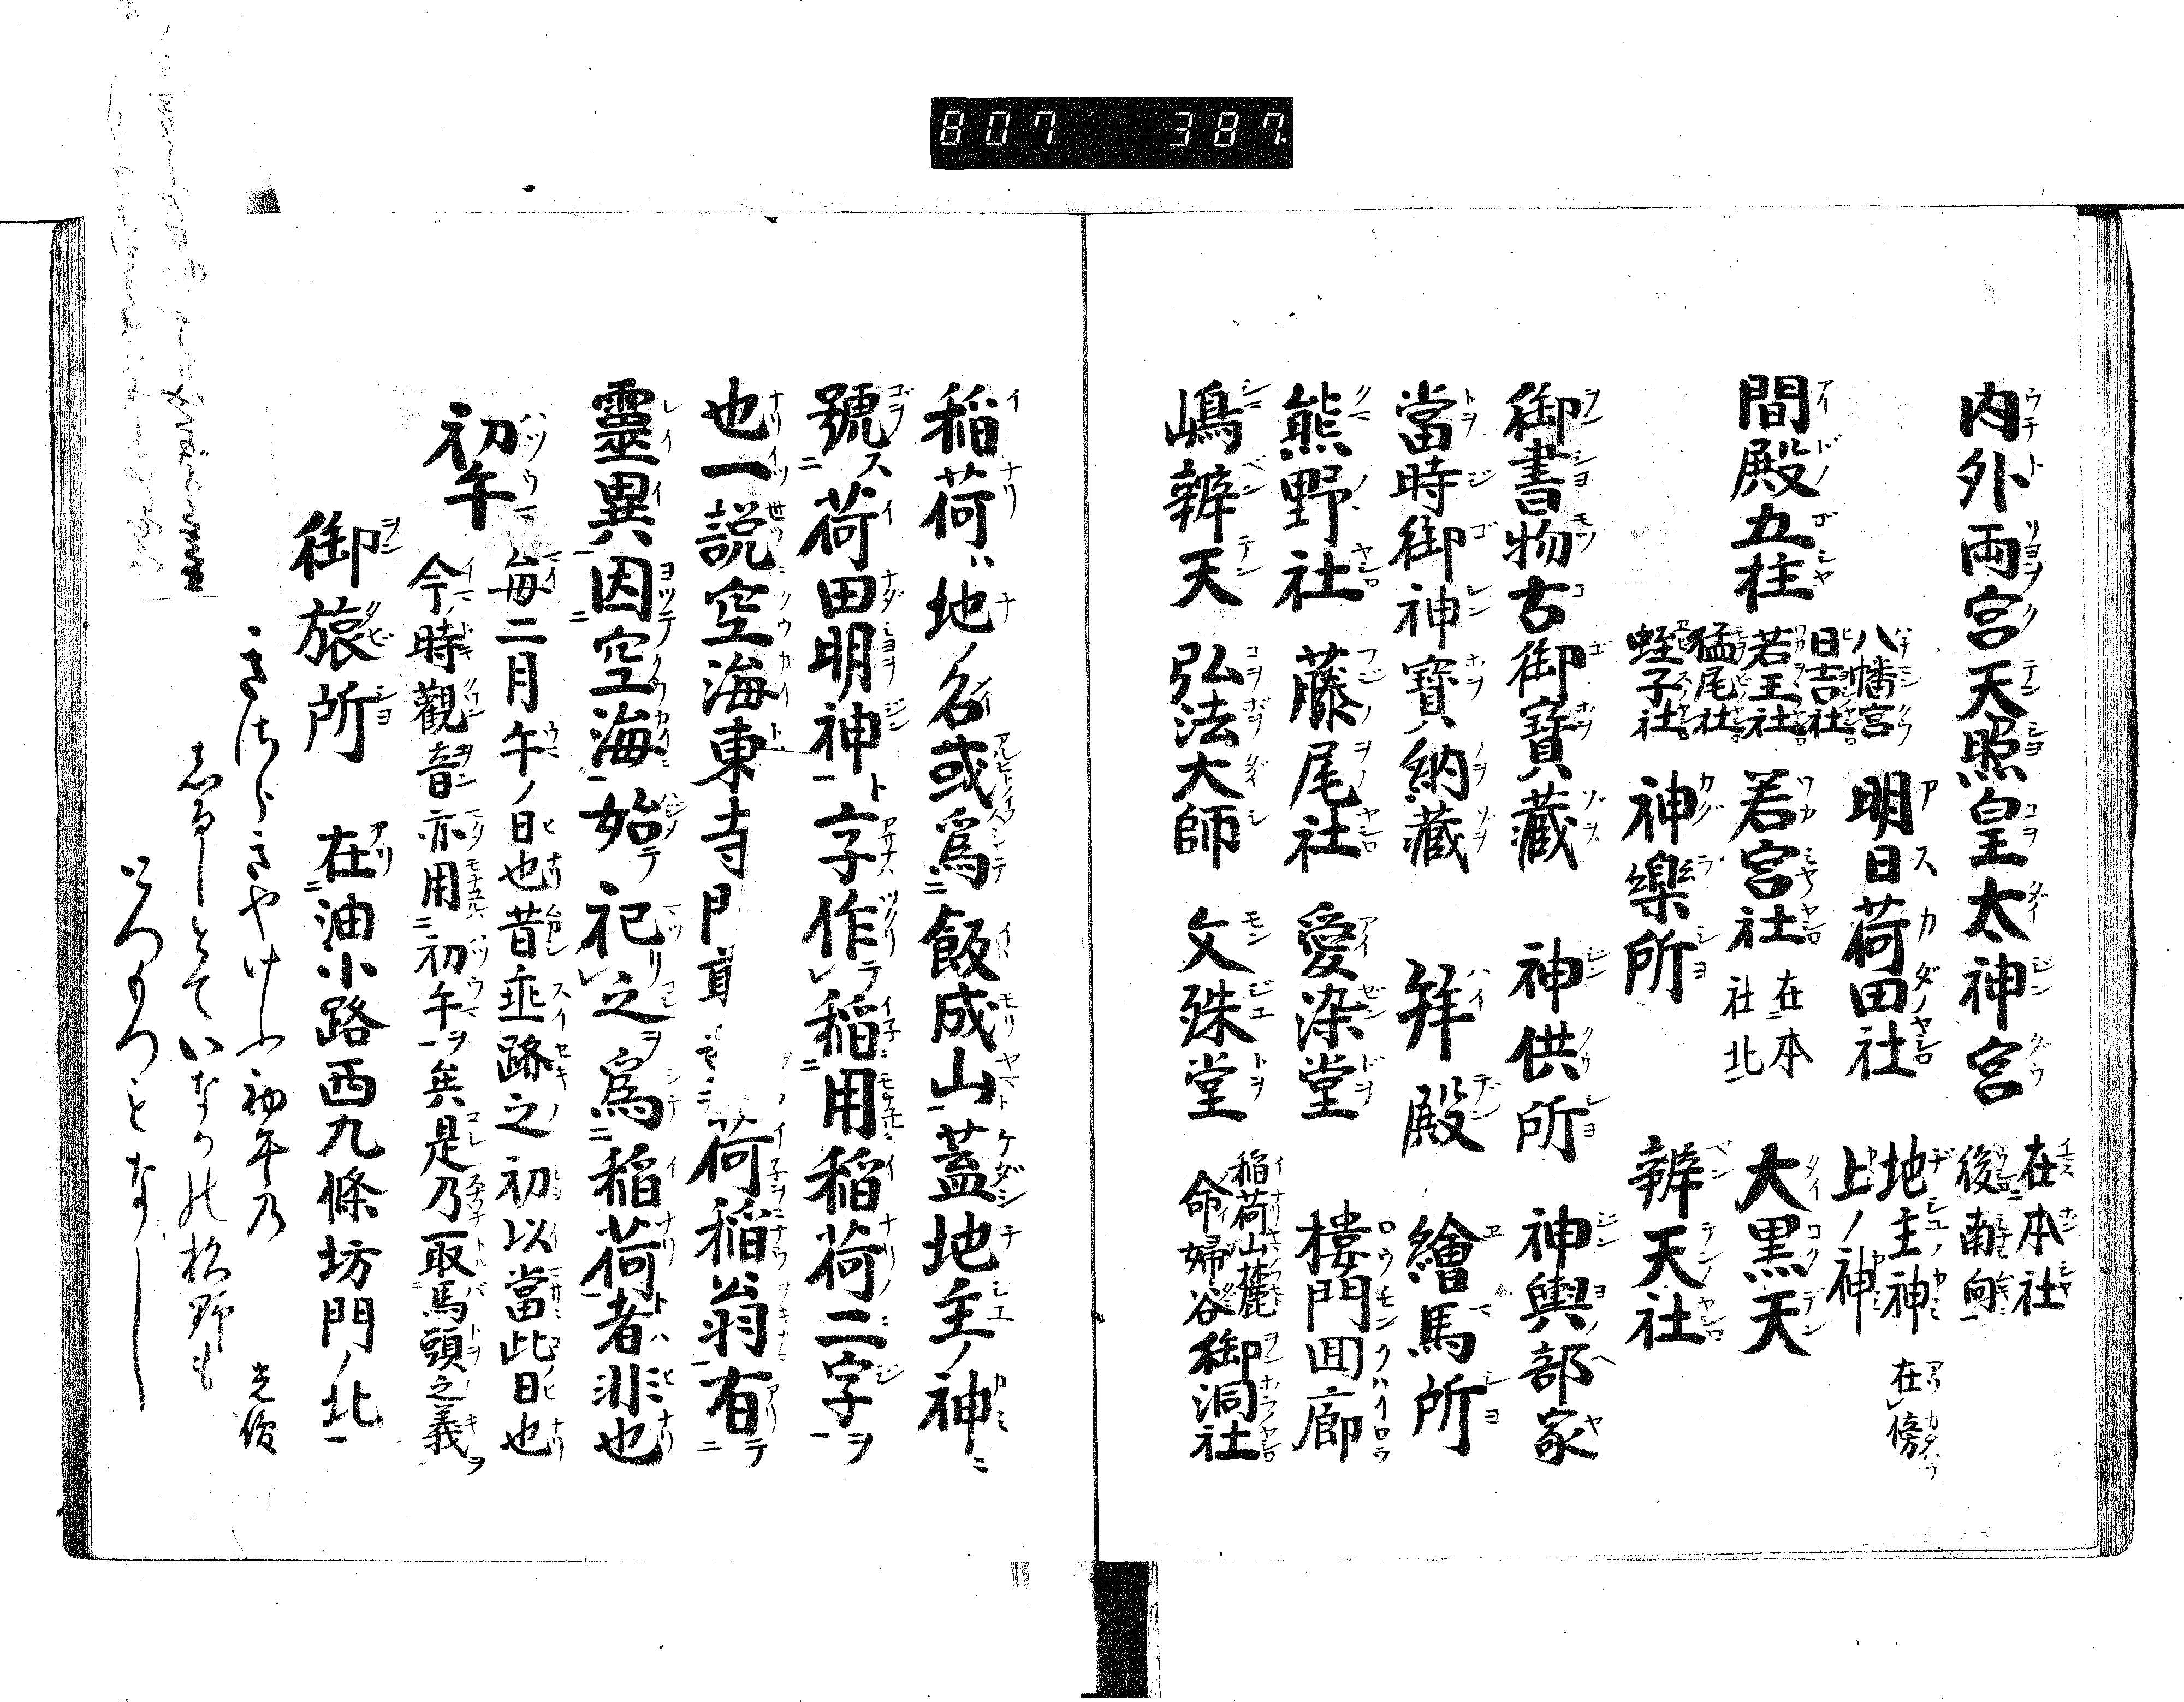 807 387
内外両宮天照皇太神宮 在本社
後南向
明日荷田社 地主神
上ノ神 在傍
間殿五柱 八幡宮
日吉社
若王社
猛尾社
蛭子社
若宮社 在本
社北 大黒天
神樂所 辨天社
御書物古御寶藏 神供所 神輿部家
當時御神寶納藏 拜殿 繪馬所
熊野社 藤尾社 愛染堂 樓門回廊
嶋辨天 弘法大師 文殊堂 稲荷山麓
命婦谷 御洞社
稲荷ハ地ノ名或爲飯成山蓋地主ノ神ニ
號ス荷田明神ト字作テ稲用稲荷二字ヲ
也一説空海東寺門前 荷稲翁有テ
靈異因空海始テ祀リ之ヲ爲稲荷者非也
初午 毎二月午ノ日也昔垂跡之初以當此日也
今ノ時觀音亦用初午ヲ矣是乃取馬頭之義ヲ
御旅所 在油小路西九條坊門ノ北
きさらきやけふ初午の 光俊
しるしとていなりの杉野も